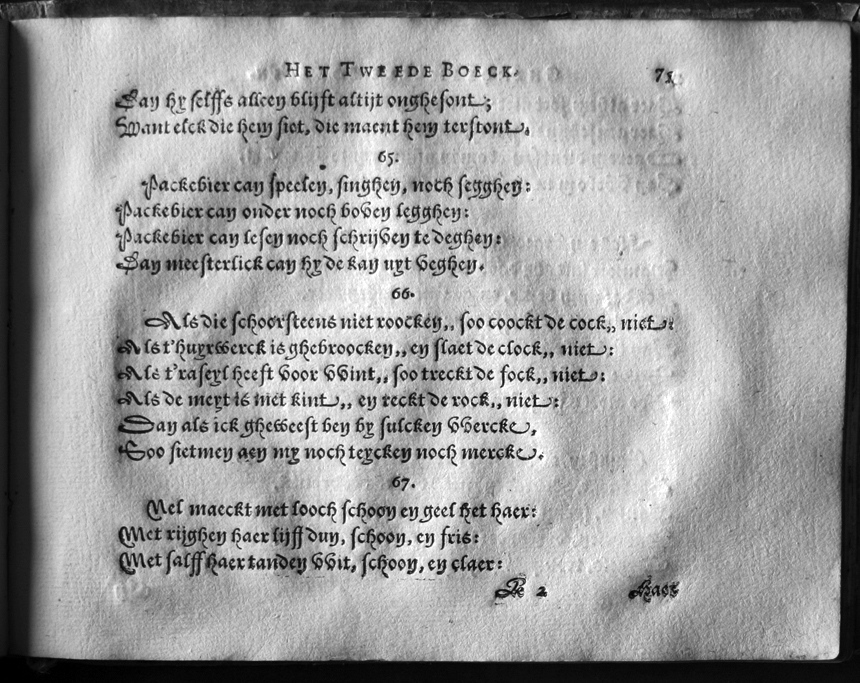 HET TWEEDE BOECK. 71
Dan hy selffs alleen blijft altijt onghesont;
Want elck die hem siet, die maent hem terstont.
65.
Packebier can speelen, singhen, noch segghen:
Packebier can onder noch boven legghen:
Packebier can lesen noch schrijven te deghen:
Dan meesterlick can hy de kan uyt veghen.
66.
Als die schoorsteens niet roocken,, soo coockt de cock,, niet:
Als t'huyrwerck is ghebroocken,, en slaet de clock,, niet:
Als t'raseyl heeft voor wint,, soo treckt de fock,, niet:
Als de meyt is met kint,, en reckt de rock,, niet:
Dan als ick gheweest ben by sulcken wercke,
Soo sietmen aen my noch teycken noch mercke.
67.
Nel maeckt met looch schoon en geel het haer:
Met rijghen haer lijff dun, schoon, en fris:
Met salff haer tanden wit, schoon, en claer:
2 Haer